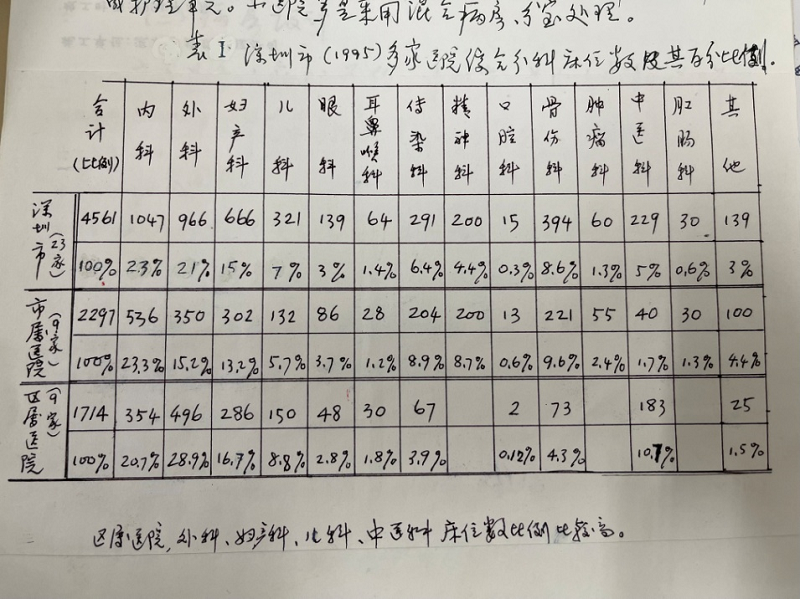 或护理单元。大医院多是采用混合病房、分室处理。
表1 深圳市(1995)多家医院综合分科床位数及其百分比例.
合计(比例) 内科 外科 妇产科 儿科 眼科 耳鼻喉科 传染科 精神科 口腔科 骨伤科 肿瘤科 中医科 肛肠科 其他
深圳市(23家) 4561 1047 966 666 321 139 64 291 200 15 394 60 229 30 139
100% 23% 21% 15% 7% 3% 1.4% 6.4% 4.4% 0.3% 8.6% 1.3% 5% 0.6% 3%
市属医院(9家) 2297 536 350 302 132 86 28 204 200 13 221 55 40 30 100
100% 23.3% 15.2% 13.2% 5.7% 3.7% 1.2% 8.9% 8.7% 0.6% 9.6% 2.4% 1.7% 1.3% 4.4%
区属医院(9家) 1714 354 496 286 150 48 30 67 2 73 183 25
100% 20.7% 28.9% 16.7% 8.8% 2.8% 1.8% 3.9% 0.12% 4.3% 10.7% 1.5%
区属医院,外科、妇产科、儿科、中医科床位数比例比较高。